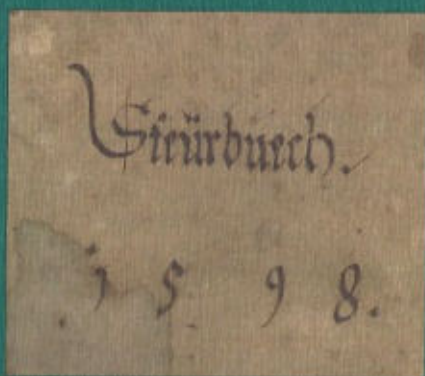 Steürbuech.
1598.